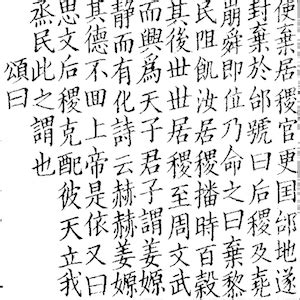 使棄居稷官更国邰地遂
封棄於邰號曰后稷及堯
崩舜即位乃命之曰棄黎
民阻飢汝居稷播時百穀
其後世世居稷至周文武
而興爲天子君子謂姜嫄
静而有化詩云赫赫姜嫄
其德不回上帝是依又曰
思文后稷克配彼天立我
烝民此之謂也
頌曰